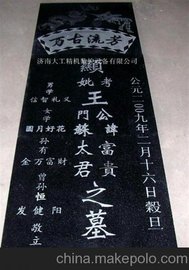 万古流芳
济南大工精机数控设备有限公司
公元二00九年二月十六日穀日
顯
考
妣
王
公諱富貴
門蘇太君
之墓
男学
礼
智信
花好
月圆
孙
有
富
财
金
万
曾孙
发
健
敬立